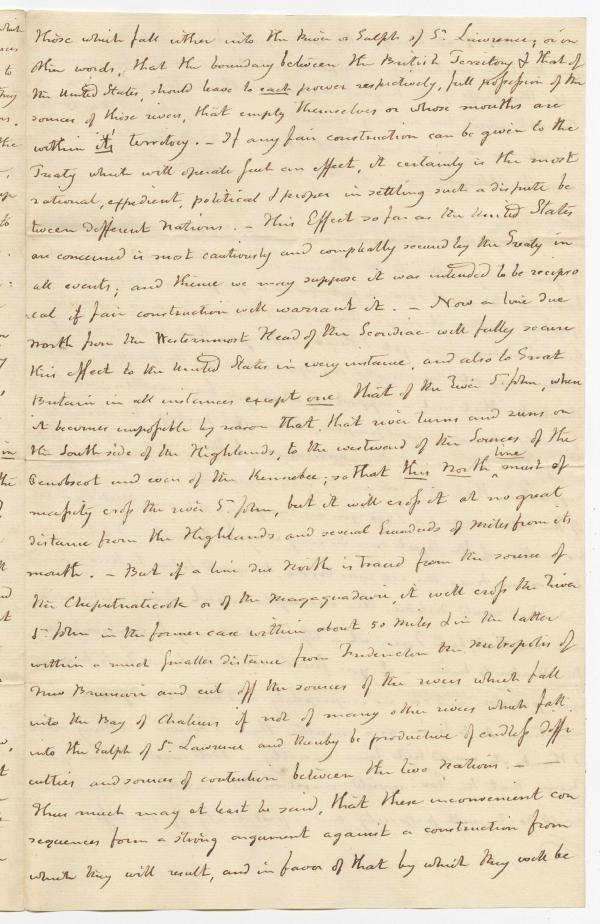 those which fall either into the River or Gulph of St. Lawrence; or in
other words, that the boundary between the British Territory & that of
the United States, should leave to each power respectively, full possession of the
sources of those rivers, that empty themselves or whose mouths are
within its territory. – If any fair construction can be given to the
Treaty which will operate such an effect, it certainly is the most
rational, expedient, political & proper in settling such a dispute be
tween different Nations. – This Effect so far as the United States
are concerned is most cautiously and compleatly secured by the Treaty in
all events; and thence we may suppose it was intended to be recipro
cal if fair construction will warrant it. – Now a line due
north from the Westernmost Head of the Scoudiac will fully secure
this effect to the United States in every instance, and also to Great
Britain in all instances except one that of the River St. John, when
it becomes impossible by reason that, that river turns and runs on
the South side of the Highlands, to the westward of the Sources of the
Penobscot and even of the Kennebec; so that this North line must of
necessity cross the river St. John, but it will cross it at no great
distance from the Highlands and several hundreds of miles from its
mouth. – But if a line due North is traced from the source of
the Cheputnaticook or of the Magaguadavic, it will cross the River
St. John in the former case within about 50 miles & in the latter
within a much smaller distance from Fredericton the Metropolis of
New Brunswic and cut off the sources of the rivers which fall
into the Bay of Chaleurs if not of many other rivers which fall
into the Gulph of St. Lawrence and thereby be productive of endless diffi
culties and sources of contention between the two Nations. – –
Thus much may at least be said, that these inconvenient con
sequences form a strong argument against a construction from
which they will result, and in favor of that by which they will be